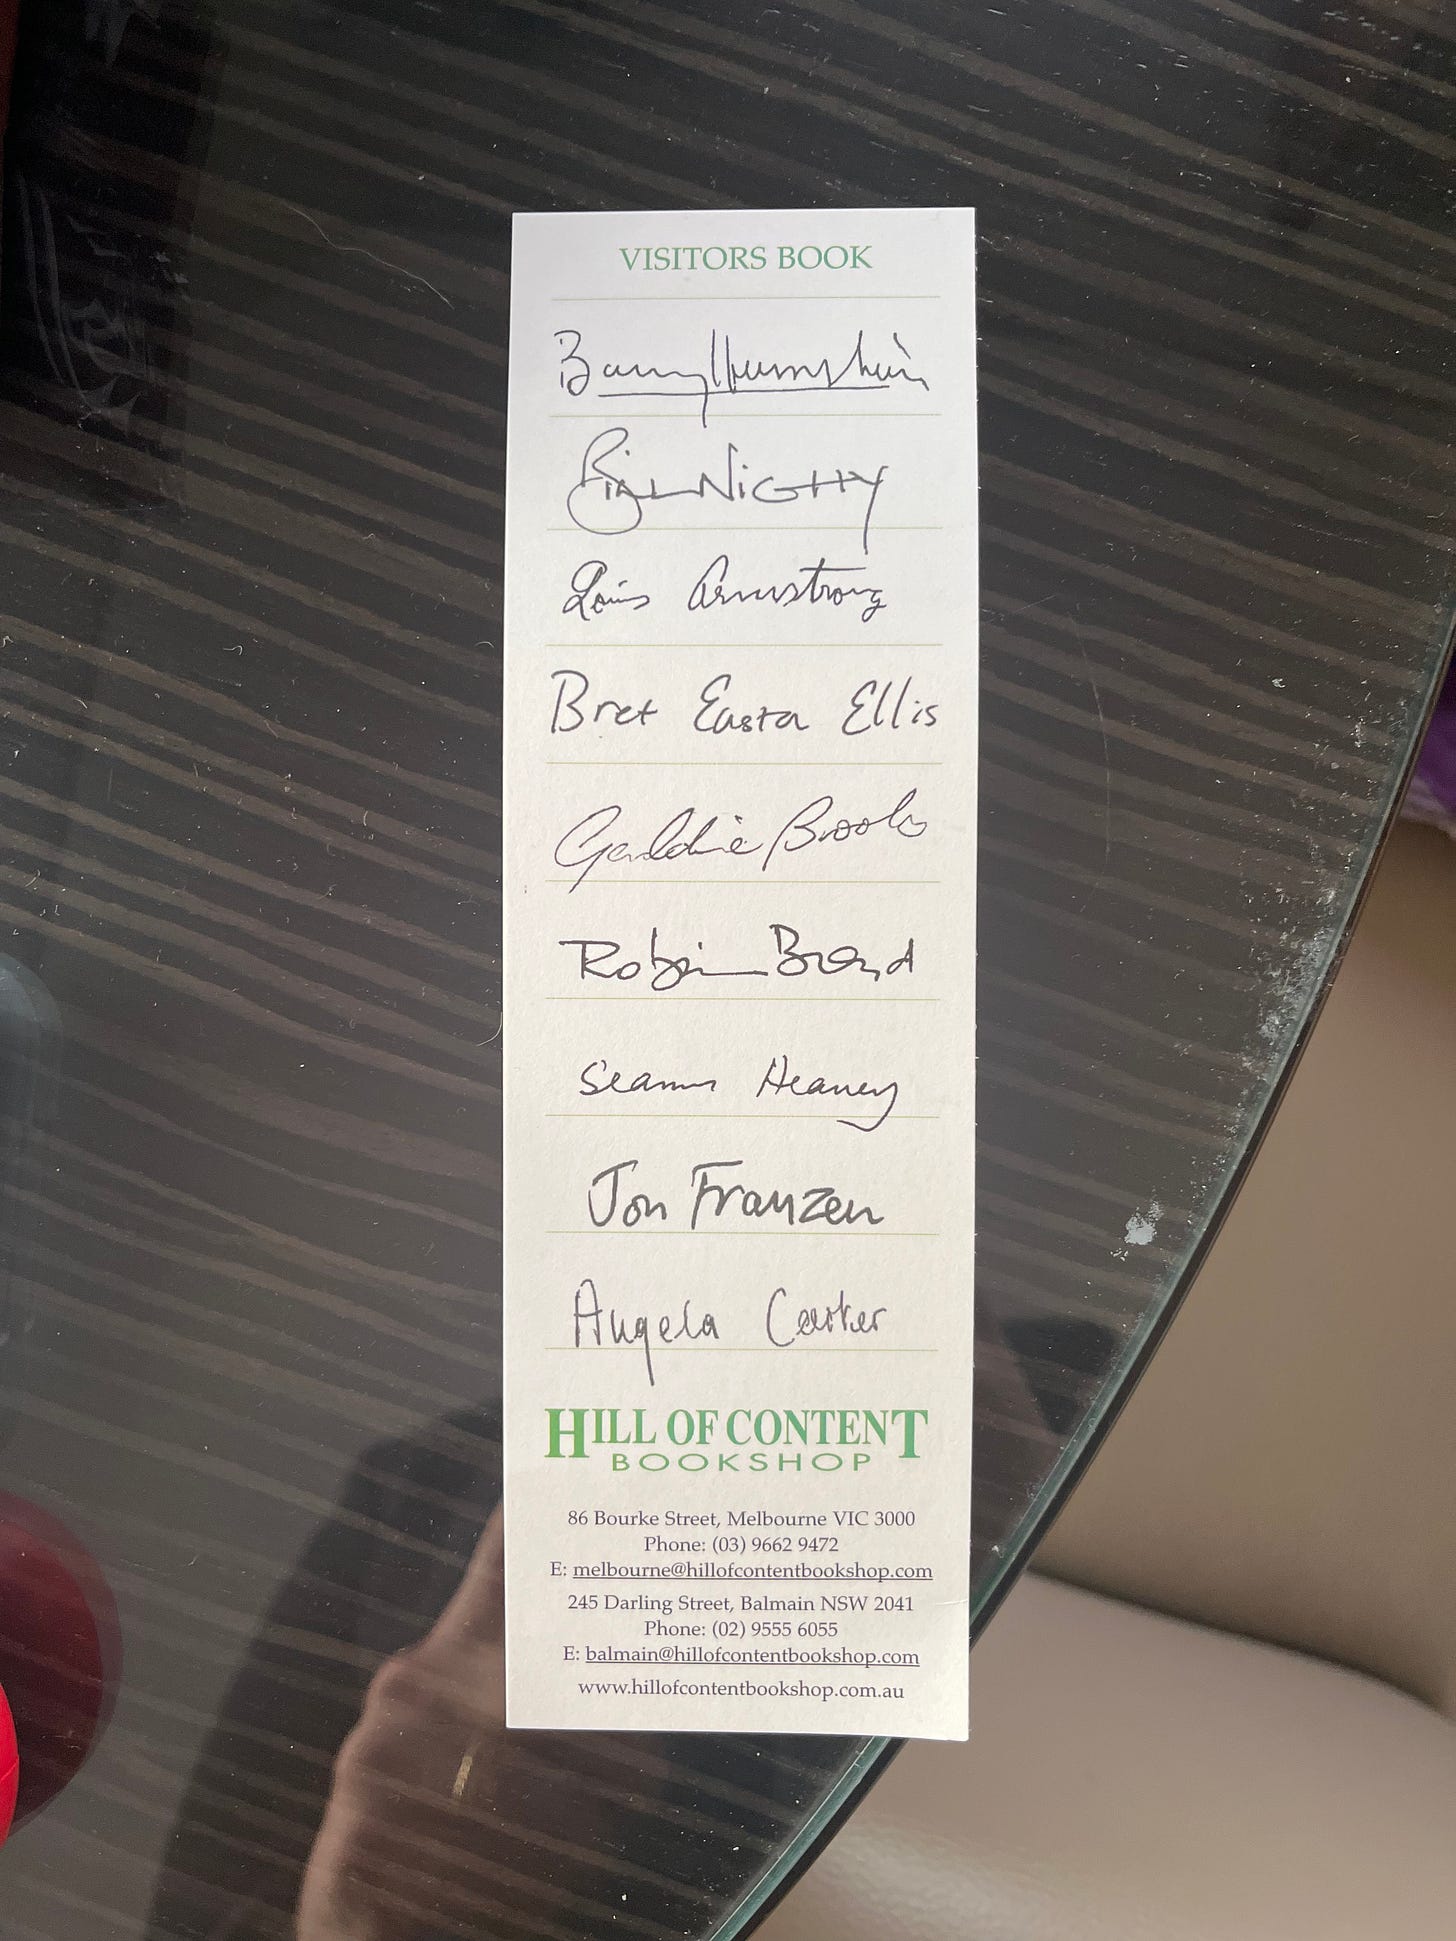 VISITORS BOOK
Barry Humphries
Bill Nighy
Louis Armstrong
Bret Easton Ellis
Geraldine Brooks
Robyn
Seamus Heaney
Jon Franzen
Angela Carter
HILL OF CONTENT
BOOKSHOP
86 Bourke Street, Melbourne VIC 3000
Phone: (03) 9662 9472
E: melbourne@hillofcontentbookshop.com
245 Darling Street, Balmain NSW 2041
Phone: (02) 9555 6055
E: balmain@hillofcontentbookshop.com
www.hillofcontentbookshop.com.au